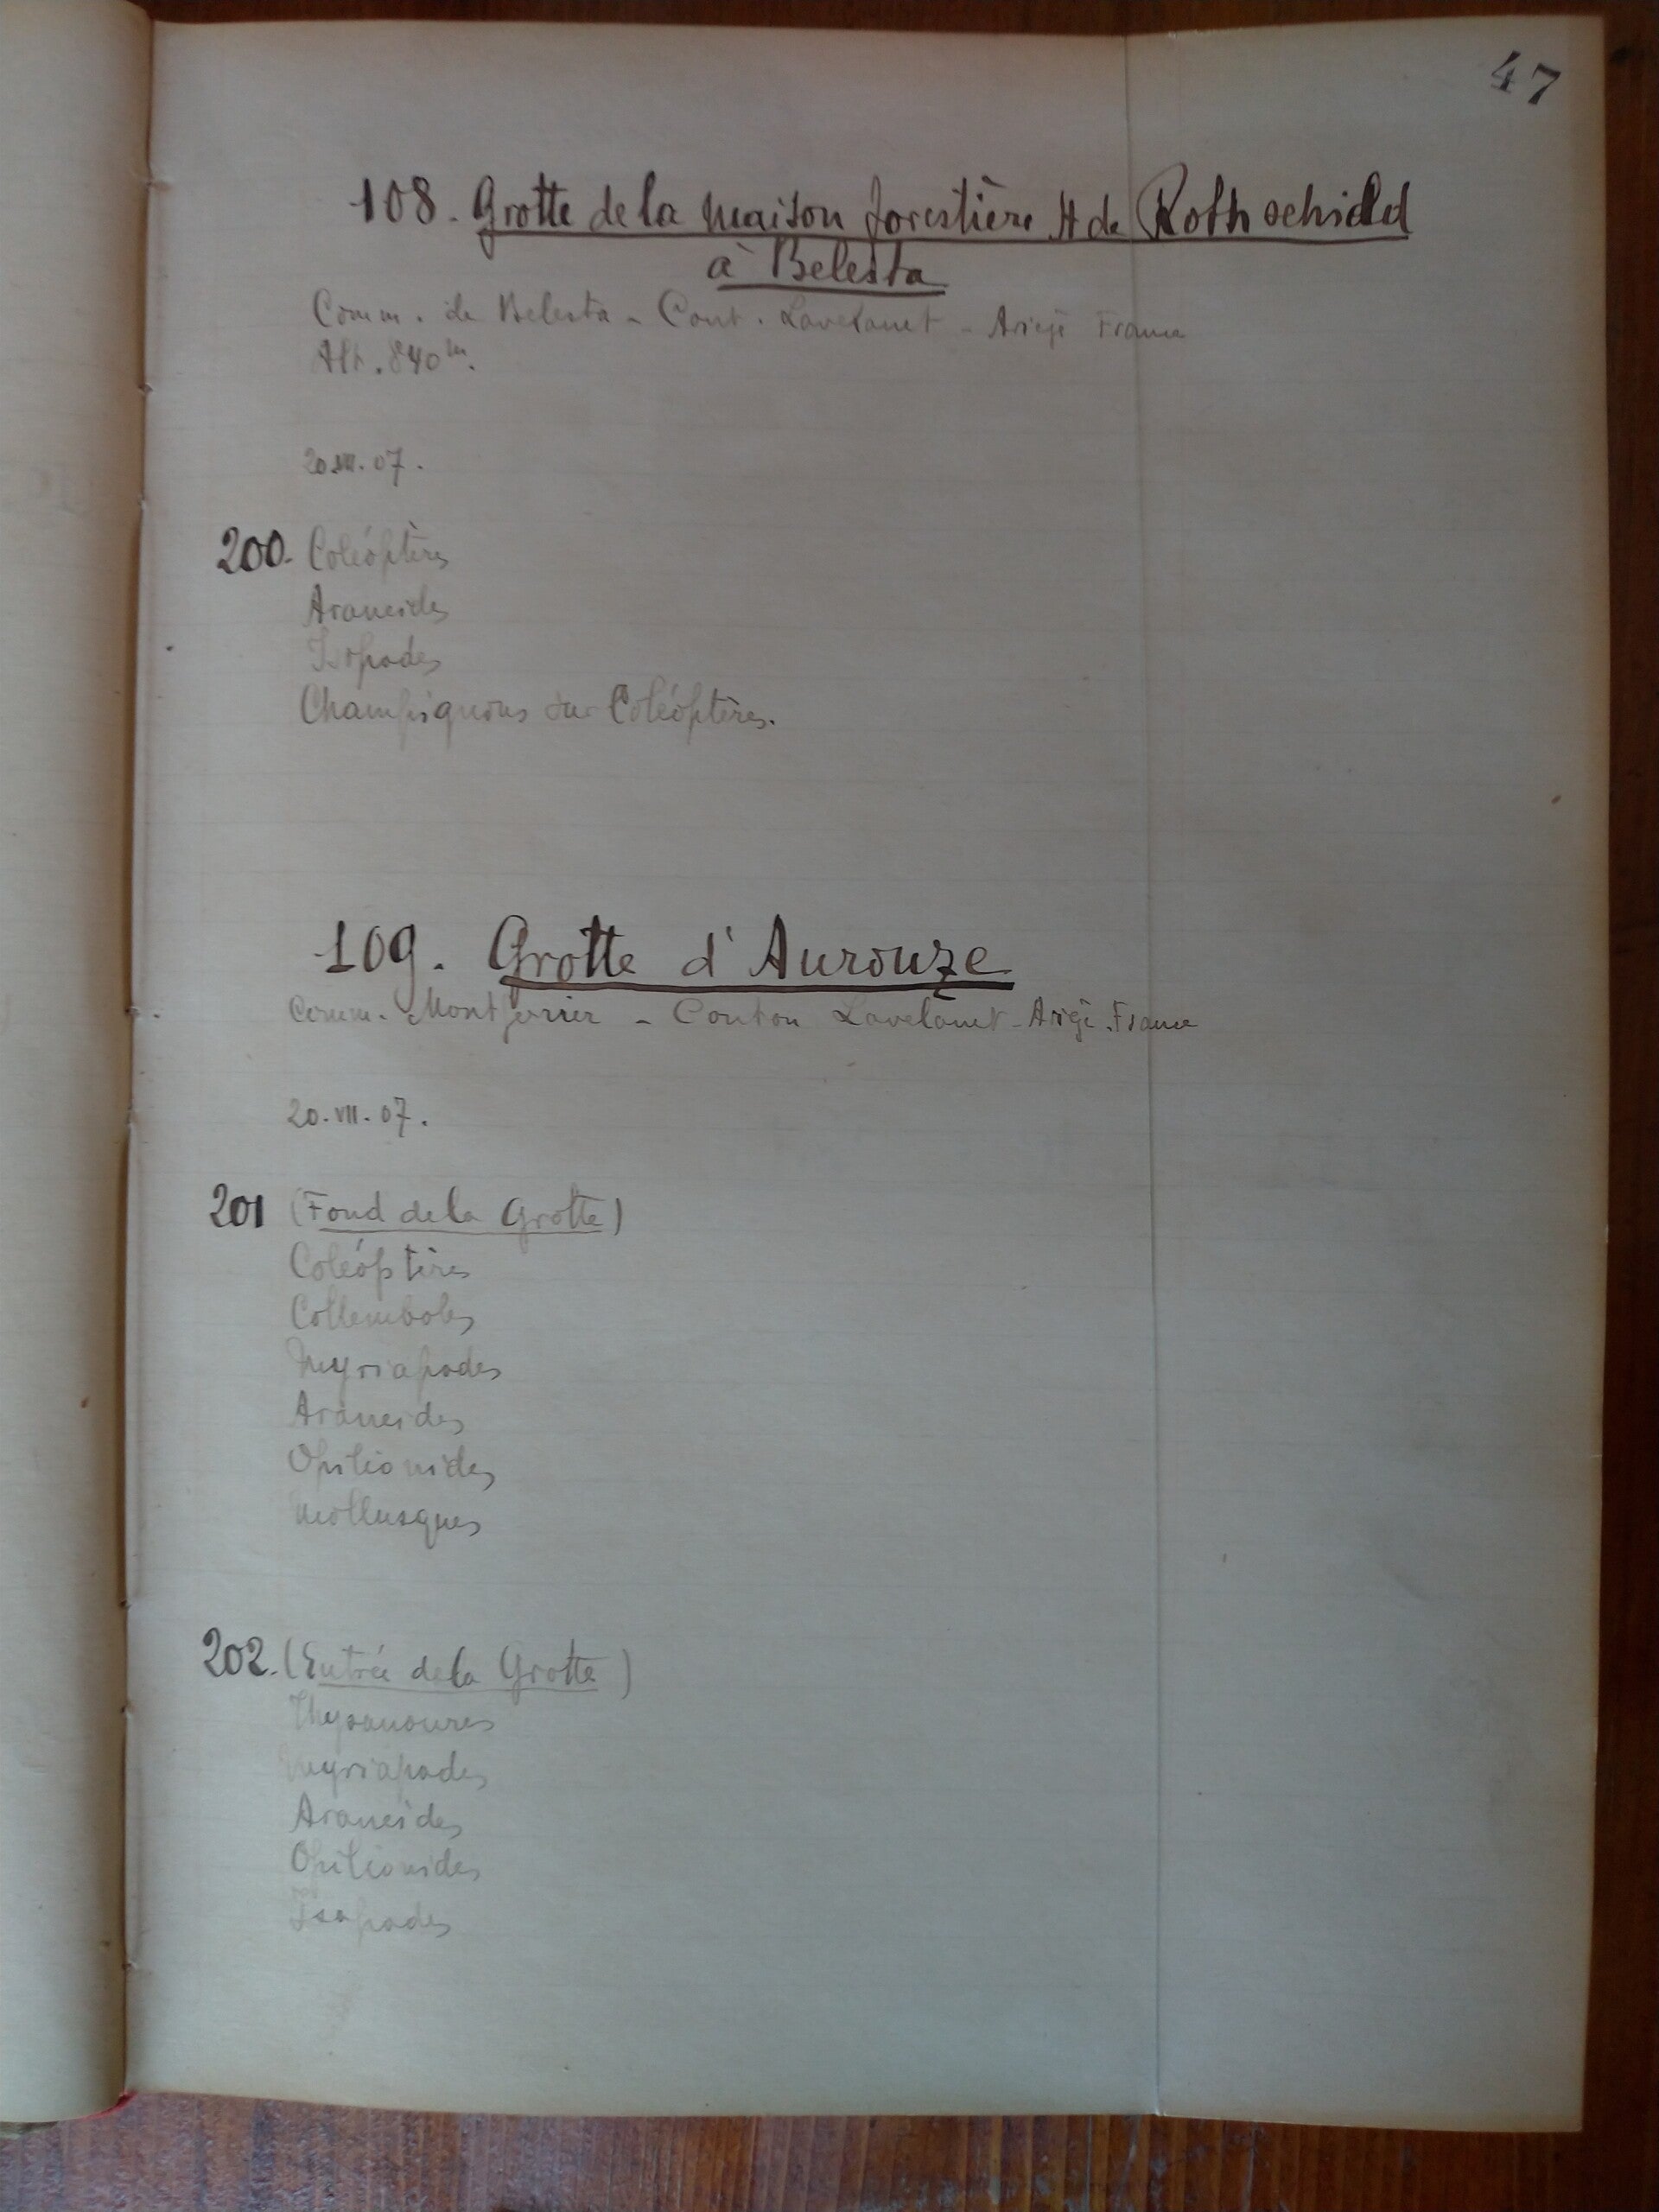 47
108. Grotte de la maison forestière H de Rothschild
à Belesta
Comm. de Belesta - Cant. Lavelanet - Ariège France
Alt. 840m.
20.VII.07.
200. Coléoptères
Araneides
Isopodes
Champignons sur Coléoptères.
109. Grotte d'Aurouze
Comm. Montferrier - Canton Lavelanet - Ariège. France
20.VII.07.
201 (Fond de la Grotte)
Coléoptères
Collemboles
Myriapodes
Araneides
Opilionides
Mollusques
202. (Entrée de la Grotte)
Thysanoures
Myriapodes
Araneides
Opilionides
Isopodes